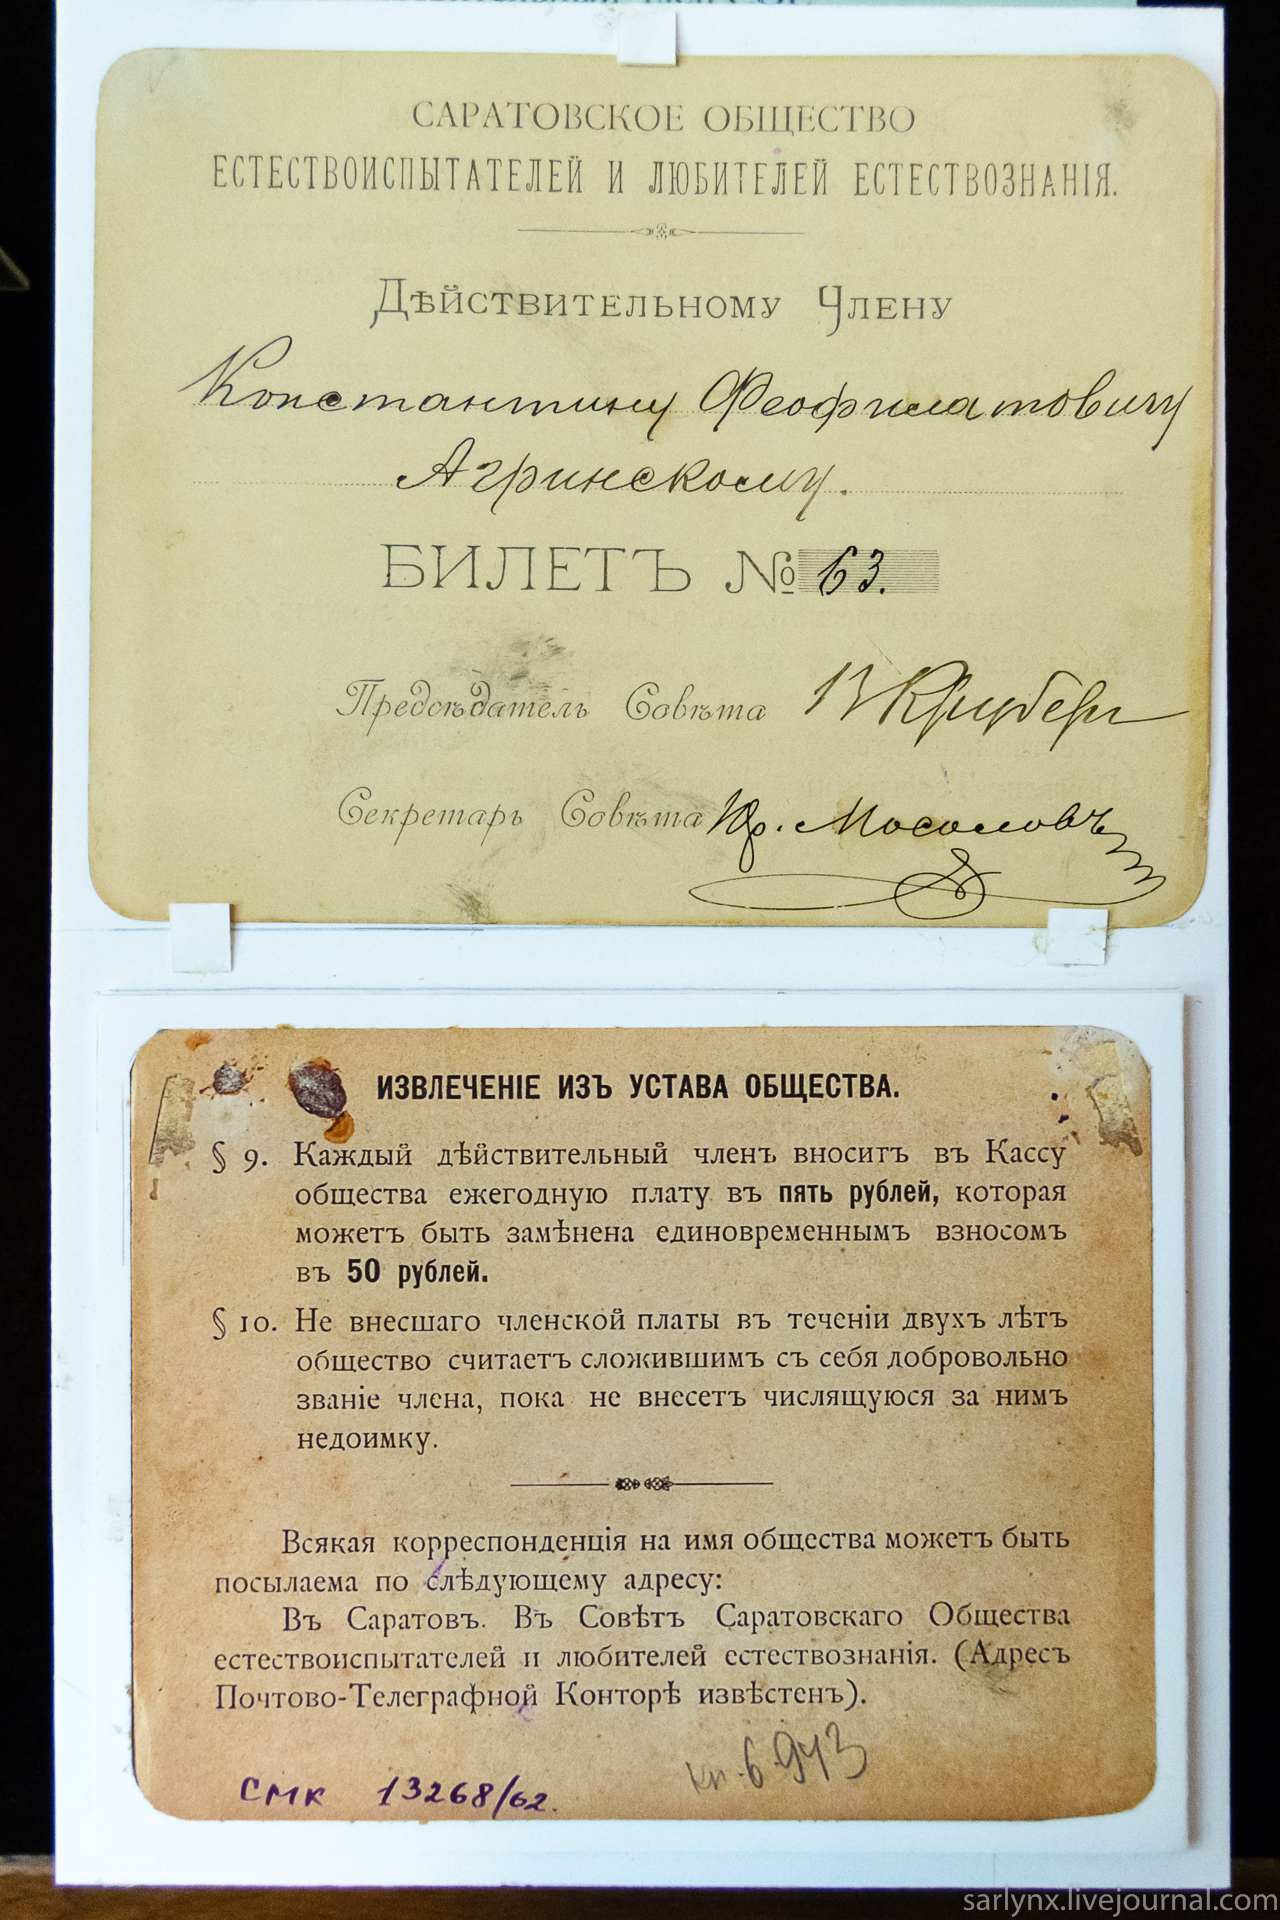 САРАТОВСКОЕ ОБЩЕСТВО
ЕСТЕСТВОИСПЫТАТЕЛЕЙ И ЛЮБИТЕЛЕЙ ЕСТЕСТВОЗНАНІЯ.
Дѣйствительному Члену
Константину Феофилатовичу
Агринскому.
БИЛЕТЪ № 63.
Предсѣдатель Совѣта
Секретарь Совѣта Юр. Мосоловъ
ИЗВЛЕЧЕНІЕ ИЗЪ УСТАВА ОБЩЕСТВА.
§ 9. Каждый дѣйствительный членъ вноситъ въ Кассу
общества ежегодную плату въ пять рублей, которая
можетъ быть замѣнена единовременнымъ взносомъ
въ 50 рублей.
§ 10. Не внесшаго членской платы въ теченіи двухъ лѣтъ
общество считаетъ сложившимъ съ себя добровольно
званіе члена, пока не внесетъ числящуюся за нимъ
недоимку.
Всякая корреспонденція на имя общества можетъ быть
посылаема по слѣдующему адресу:
Въ Саратовъ. Въ Совѣтъ Саратовскаго Общества
естествоиспытателей и любителей естествознанія. (Адресъ
Почтово-Телеграфной Конторѣ извѣстенъ).
СМК 13268/62.
кп 6943
sarlynx.livejournal.com